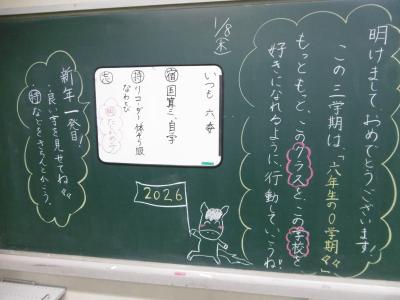 明けましておめでとうございます!
この三学期は「六年生の0学期」
もっともっと、このクラスと、この学校を
好きになれるように、行動していこうね!
1/8
(木)
いつも 六
宿 国 算 三、自学
持 リコーダー 体ぞう服
なわとび
新年一発目!
良い字を見せてね
などをきちんとかこう。
2026